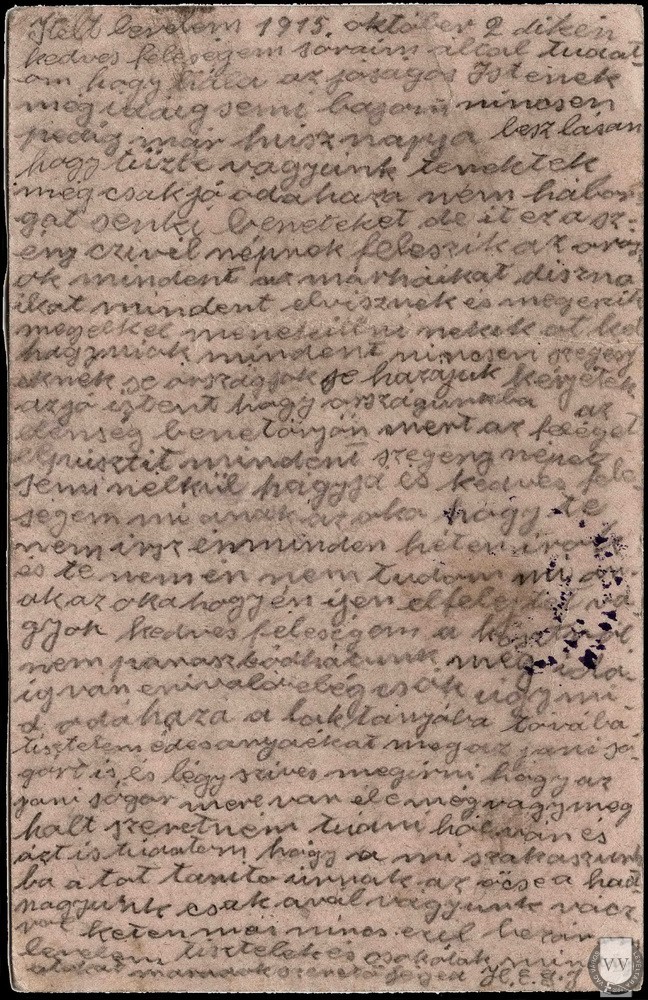 Kelt levelem 1915. október 2 dikén
kedves feleségem soraim által tudat
om hogy hála az jóságos Istenek
meg idáig semi bajom nincsen
pedig már húsz napja
hogy tüzte vagyunk tenektek
még csak jó oda haza nem hábor
gat senki beneteket de it ez a sz
eng czivil népnek feleszik az oro
ok mindent az marháikat diszna
ikat mindent elvisznek és megeszik
menekülni nekek ot ked
hagyniok mindent nincsen szegény
eknek se országjok se hazájuk kérjétek
az jó istent hogy országunkba az
lenség benetörjön mert az feléget
elpusztit mindent szegeny népet
semi nelkül hagyja és kedves fele
ségem mi anak az oka hogy te
nem irsz én minden héten irok
és te nem én nem tudom mi an
ak az oka hogy én ijen elfelejtet va
gyok kedves feleségem a kosztról
nem panaszkodhatunk meg ida
ig van enivaló elég csak úgy mi
t oda haza a laktanyába továbá
tisztelem édesanyáékat meg az jani só
gort is és légy szives megirni hogy az
jani sógor mere van él e még vagy meg
halt szeretném tudni hol van és
azt is tudatom hogy a mi szakaszunk
ba a tót tanitó úrnak az öcse a had
nagyunk csak avval vagyunk vácz
ról keten más nincs ezel bezár
levelem tisztelek és csokolak min
maradok szerető H. E. G. J
VV